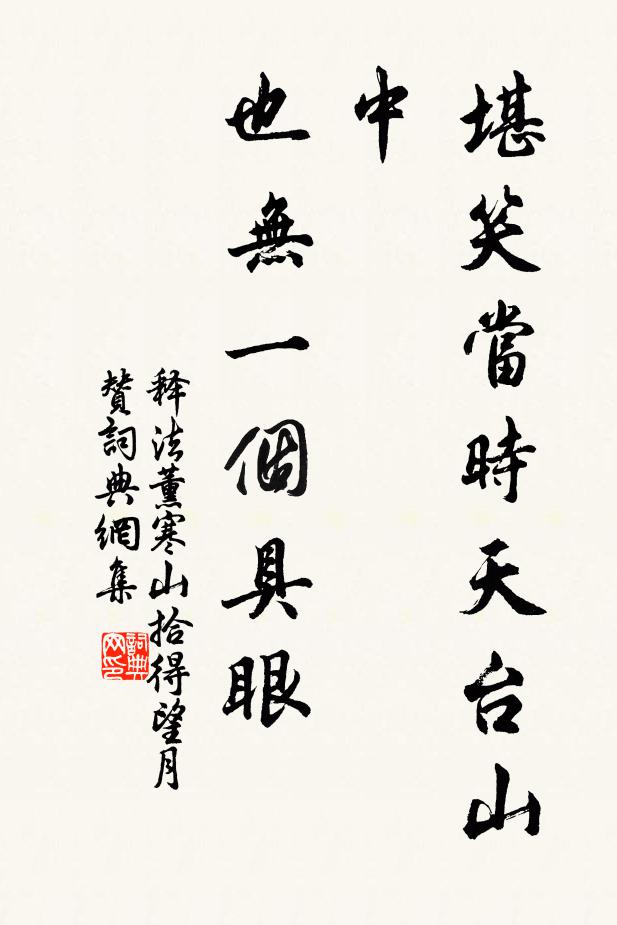 堪笑當時天台山
中
也無一個具眼
释法薰寒山拾得望月
贊詞典網集
詞典网印